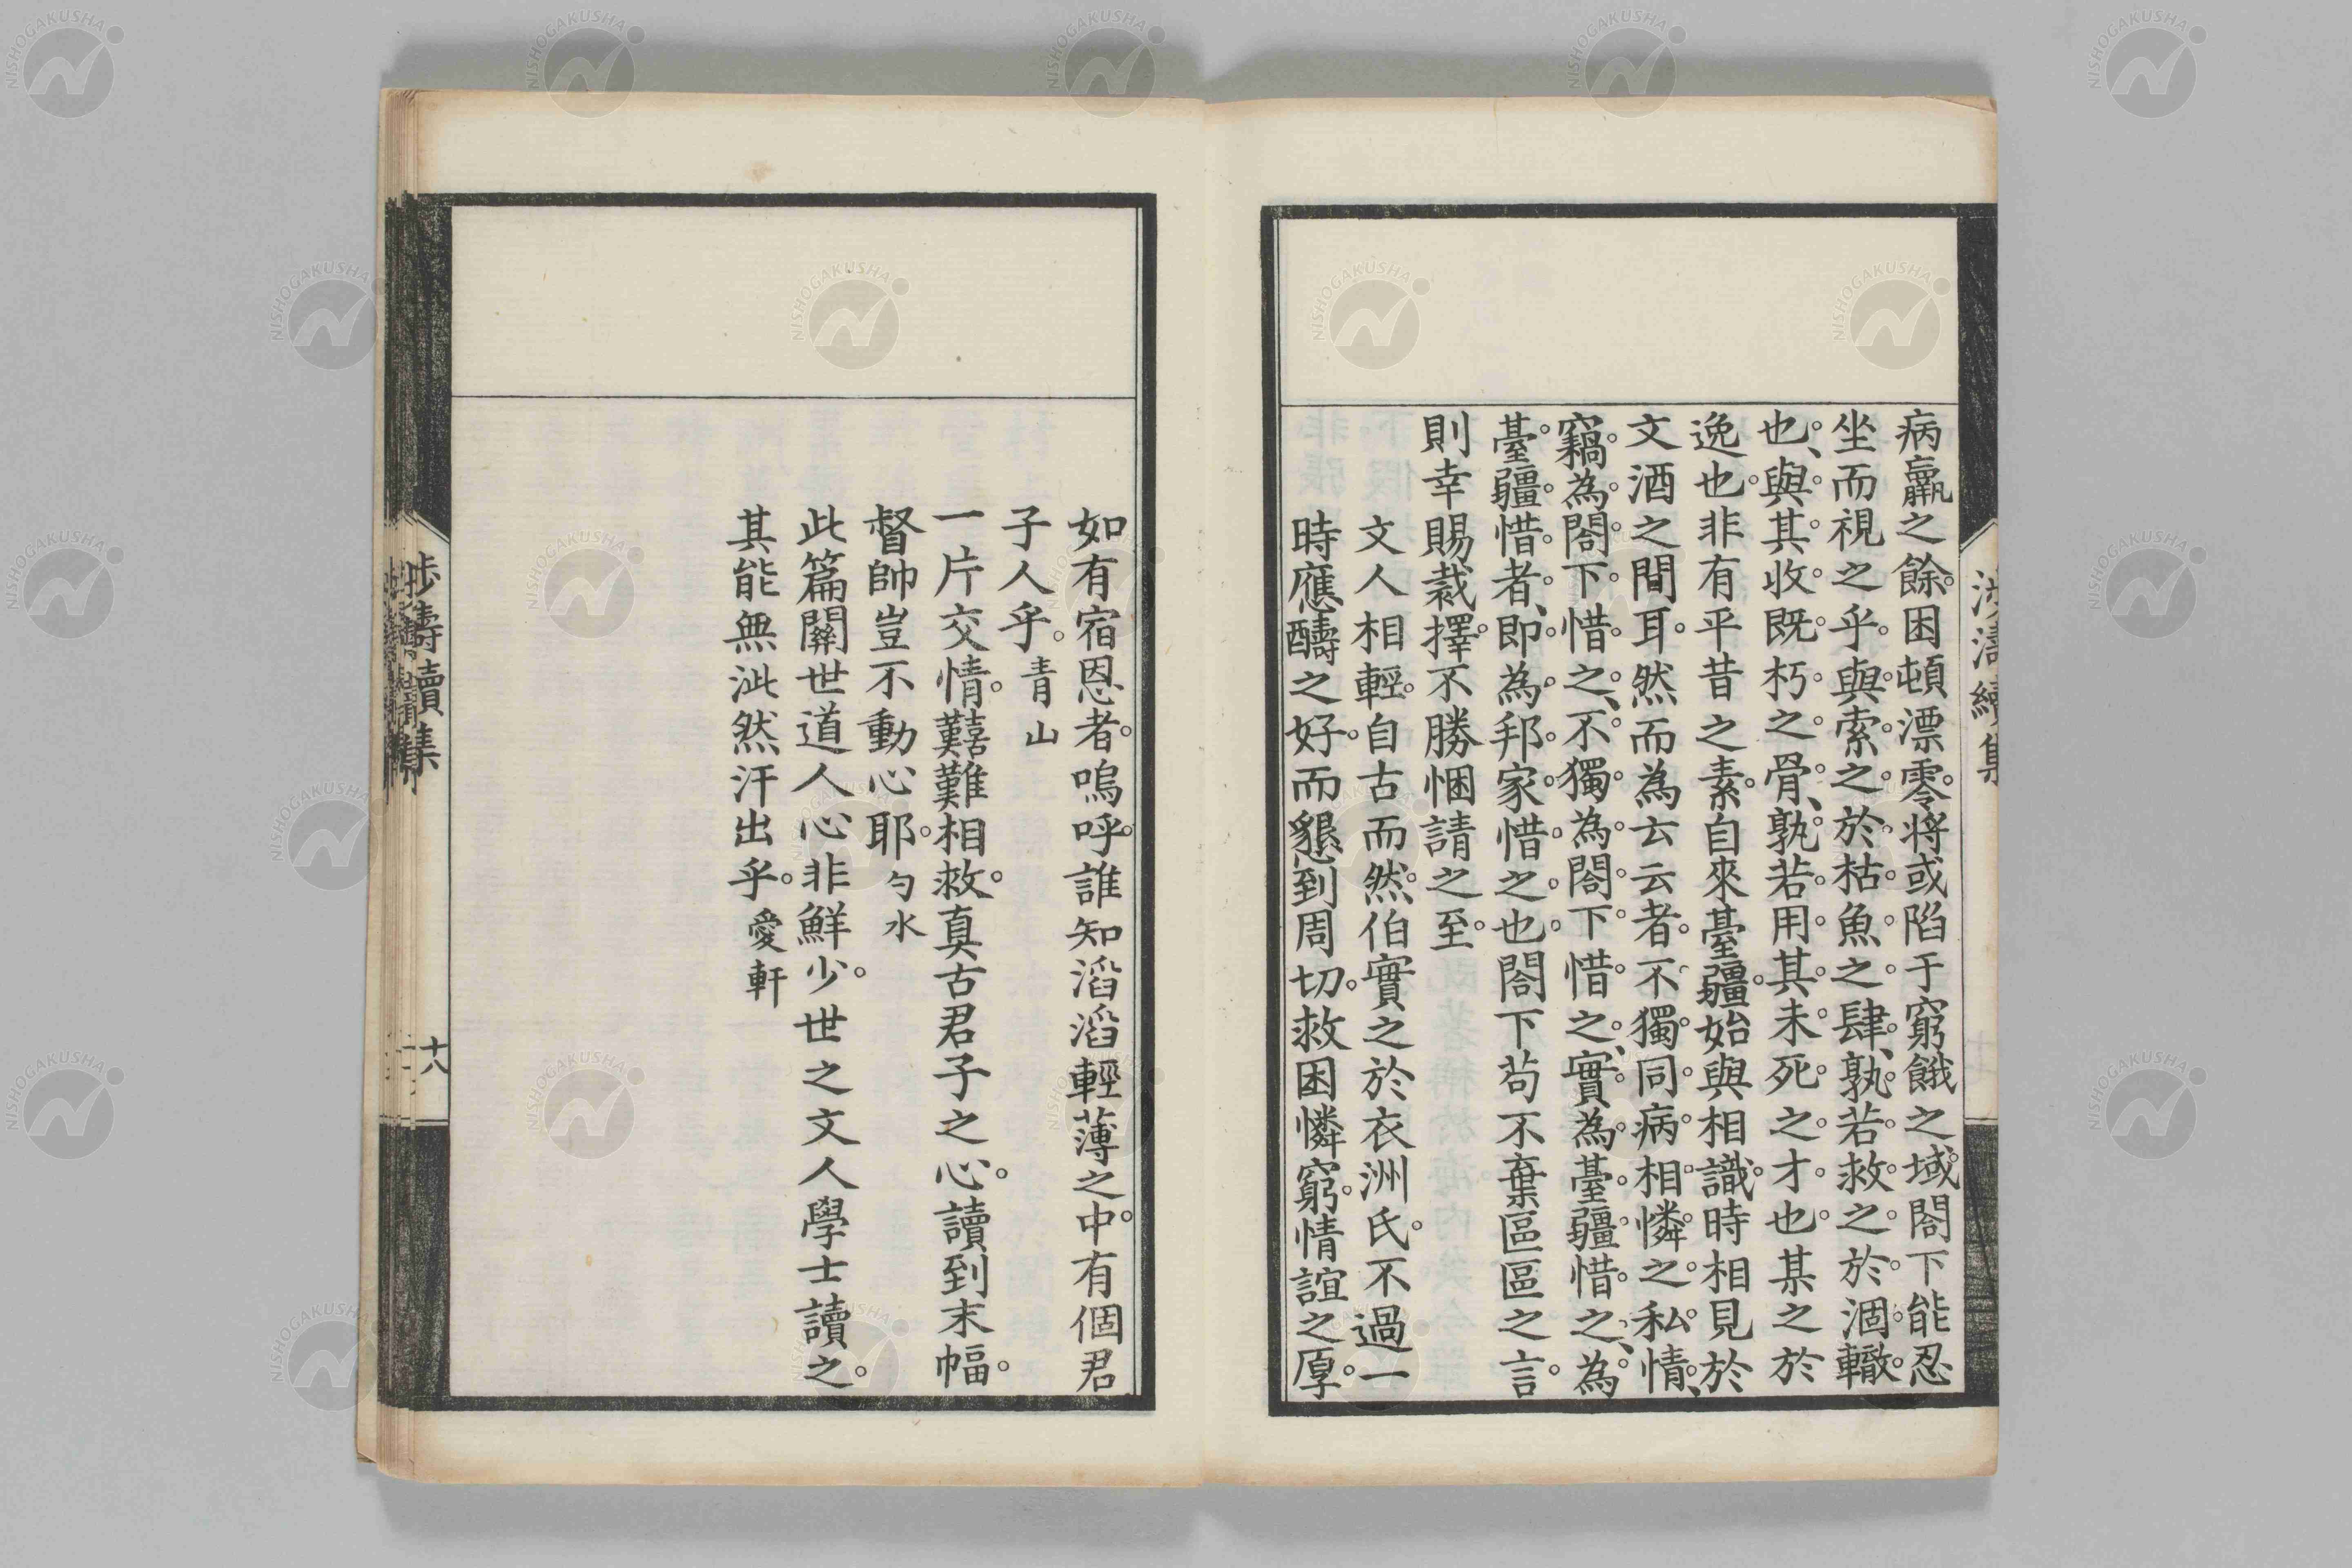 病羸之餘困頓漂零將或陷于窮餓之域閤下能忍
坐而視之乎與索之於枯魚之肆孰若救之於涸轍
也與其收既朽之骨孰若用其未死之才也某之於
逸也非有平昔之素自來臺疆始與相識時相見於
文酒之間耳然而為云云者不獨同病相憐之私情
竊為閤下惜之不獨為閤下惜之實為臺疆惜之為
臺疆惜者即為邦家惜之也閤下苟不棄區區之言
則幸賜裁擇不勝悃請之至
文人相輕自古而然伯實之於衣洲氏不過一
時應醻之好而懇到周切救困憐窮情誼之厚
如有宿恩者嗚呼誰知滔滔輕薄之中有個君
子人乎 青山
一片交情囏難相救真古君子之心讀到末幅
督帥豈不動心耶 勺水
此篇關世道人心非鮮少世之文人學士讀之
其能無泚然汗出乎 愛軒
涉濤續集
十八
NISHOGAKUSHA